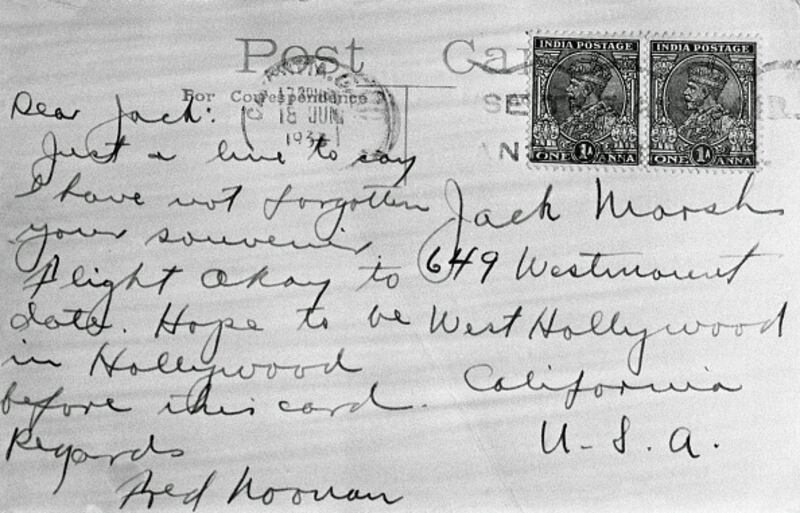 Post
For Correspondence
18 JUN
INDIA POSTAGE
ONE 1A ANNA
INDIA POSTAGE
ONE 1A ANNA
Dear Jack:
Just a line to say
I have not forgotten
your souvenir.
Flight okay to
date. Hope to be
in Hollywood
before this card.
Regards
Fred Noonan
Jack Marsh
649 Westmount
West Hollywood
California
U.S.A.